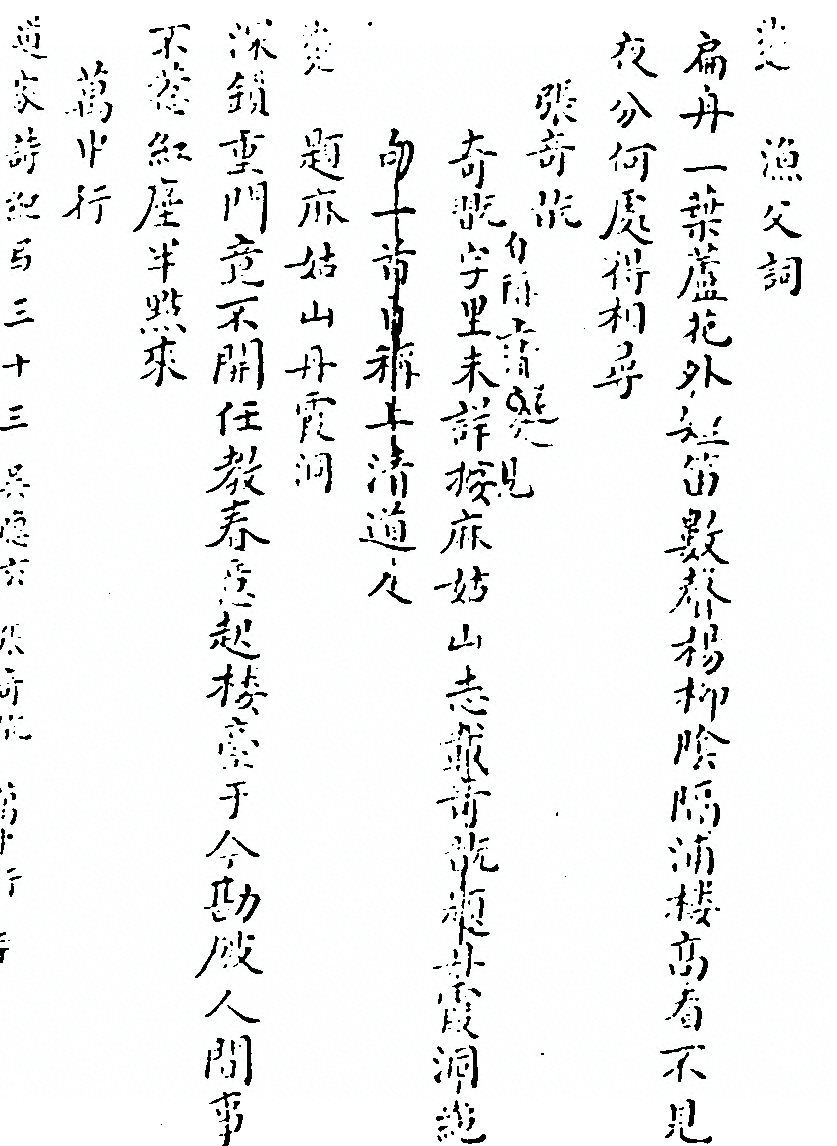 漁父詞
扁舟一葉蘆花外短笛數聲楊柳陰隔浦樓高看不見
夜分何處得相尋
張奇觥
奇觥字里未詳按麻姑山志載奇觥題丹霞洞絕
句一首自稱上清道人
題麻姑山丹霞洞
深鎖重門竟不開任教春意起樓臺于今勘破人間事
不惹紅塵半點來
萬中行
道家詩紀 三十三 吳 張奇觥 萬中行